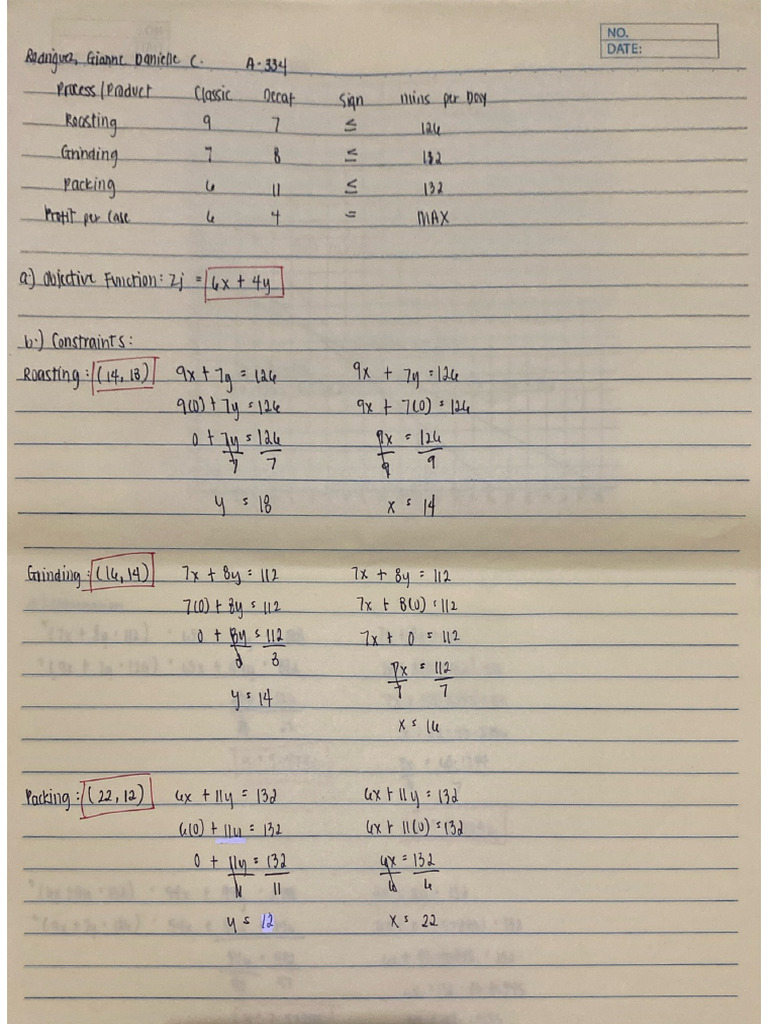 NO.
DATE:
Rodriguez, Gianne Danielle C. A-334
Process/Product Classic Decaf Sign mins per Day
Roasting 9 7 ≤ 126
Grinding 7 8 ≤ 132
Packing 6 11 ≤ 132
Profit per Case 6 4 = MAX
a.) Objective Function: Zj = 6x + 4y
b.) Constraints:
Roasting: (14, 18) 9x + 7y = 126 9x + 7y = 126
9(0) + 7y = 126 9x + 7(0) = 126
0 + 7y = 126 9x = 126
7 7 9 9
y = 18 x = 14
Grinding: (16, 14) 7x + 8y = 112 7x + 8y = 112
7(0) + 8y = 112 7x + 8(0) = 112
0 + 8y = 112 7x + 0 = 112
8 8 7x = 112
y = 14 7 7
x = 16
Packing: (22, 12) 6x + 11y = 132 6x + 11y = 132
6(0) + 11y = 132 6x + 11(0) = 132
0 + 11y = 132 6x = 132
11 11 6 6
y = 12 x = 22